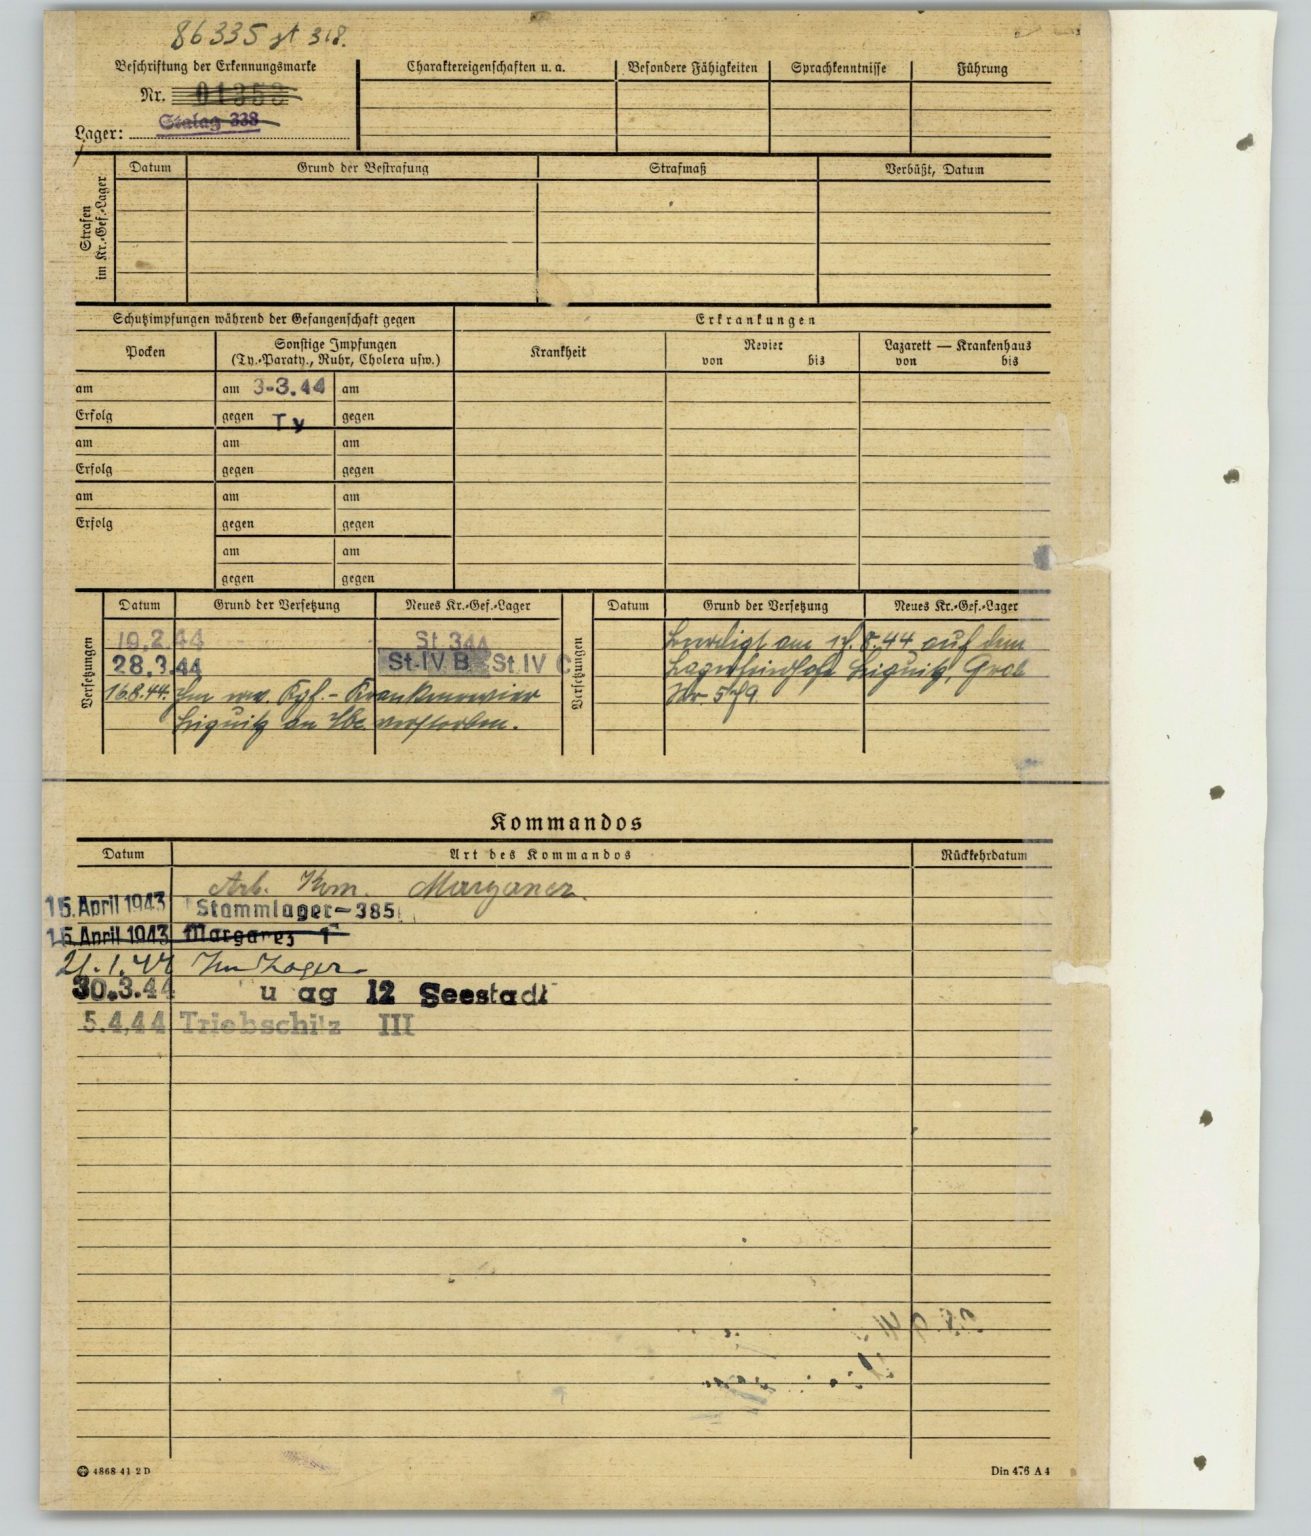 86335 st 318.
Beschriftung der Erkennungsmarke
Nr. 01353
Lager: Stalag 338
Charaktereigenschaften u. a.
Besondere Fähigkeiten
Sprachkenntnisse
Führung
Strafen
im Kr.-Gef.-Lager
Datum
Grund der Bestrafung
Strafmaß
Verbüßt, Datum
Schutzimpfungen während der Gefangenschaft gegen
Erkrankungen
Pocken
Sonstige Impfungen
(Ty.-Paraty., Ruhr, Cholera usw.)
Krankheit
Revier
von bis
Lazarett — Krankenhaus
von bis
am am 3-3.44 am
Erfolg gegen Ty gegen
am am am
Erfolg gegen gegen
am am am
Erfolg gegen gegen
am am
gegen gegen
Versetzungen
Datum Grund der Versetzung Neues Kr.-Gef.-Lager
19.2.44 St. 344
28.3.44 St. IV B St. IV C
16.8.44. Im Kgf.-Krankenrevier
an verstorben.
Versetzungen
Datum Grund der Versetzung Neues Kr.-Gef.-Lager
Beerdigt am 8.44 auf dem
Lagerfriedhofe Grab
Nr. 579.
Kommandos
Datum Art des Kommandos Rückkehrdatum
Arb. Kom. Marganez.
15. April 1943 Stammlager-385
15. April 1943 Marganez 1
21.1.44 Im Lager
30.3.44 u ag 12 Seestadt
5.4.44 Triebschitz III
4868 41 2 D
Din 476 A 4